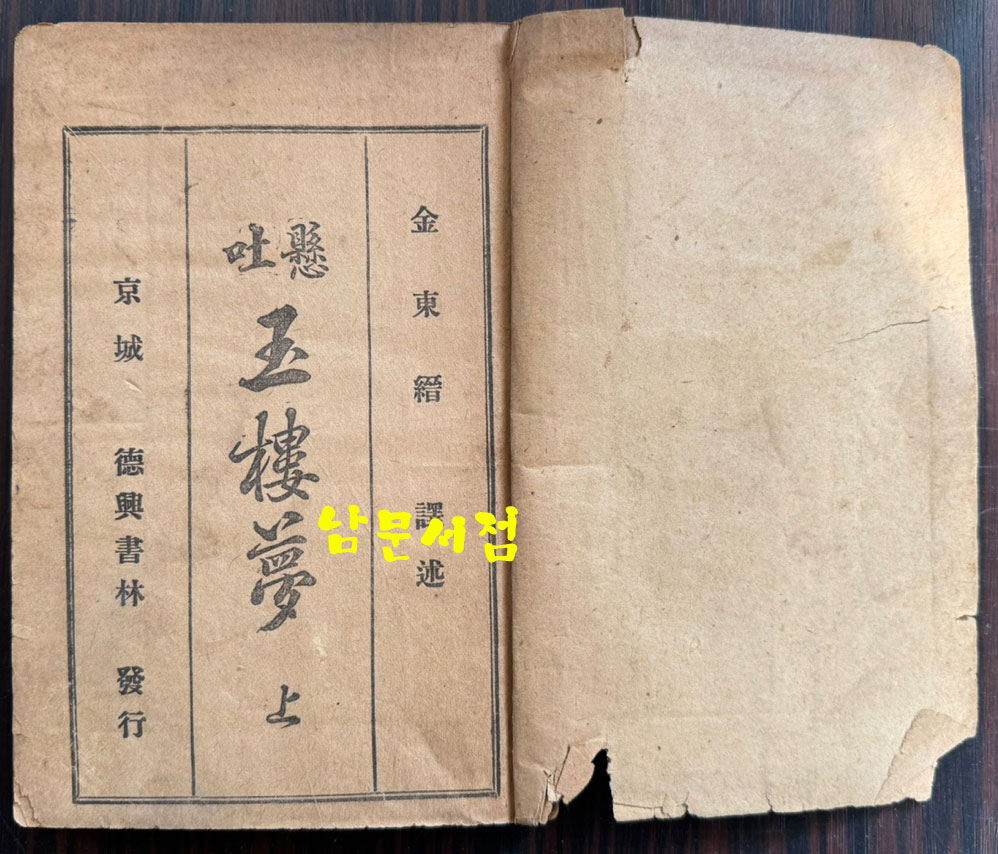 金東縉 譯述
懸吐
玉樓夢 上
京城 德興書林 發行
남문서점